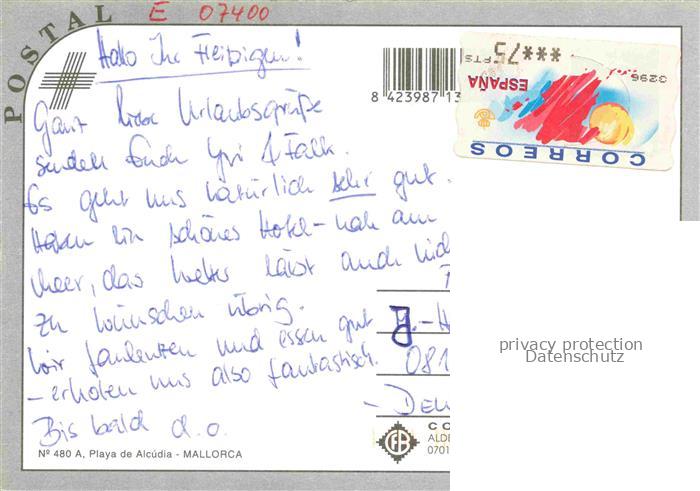 POSTAL
E 07400
Hallo Ihr Fleißigen!
8 423987 13
PTS 75***
3296
ESPAÑA
CORREOS
Ganz liebe Urlaubsgrüße
senden Euch Yvi & Falk.
Es geht uns natürlich sehr gut.
Haben ein schönes Hotel - nah am
Meer, das Wetter lässt auch nichts
zu wünschen übrig.
Wir faulenzen und essen gut
- erholen uns also fantastisch.
Bis bald d.o.
081
- DEU
CO
ALDE
0701
Nº 480 A, Playa de Alcúdia - MALLORCA
privacy protection
Datenschutz